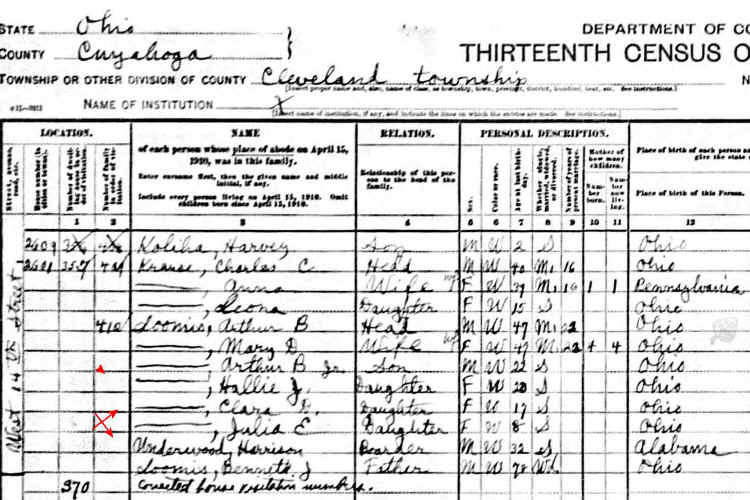 STATE Ohio
DEPARTMENT OF CO
COUNTY Cuyahoga
THIRTEENTH CENSUS O
TOWNSHIP OR OTHER DIVISION OF COUNTY Cleveland township
N
[Insert proper name and, also, name of class, as township, town, precinct, district, hundred, beat, etc. See instructions.]
NAME OF INSTITUTION X
[Insert name of institution, if any, and indicate the lines on which the entries are made. See instructions.]
LOCATION. NAME RELATION. PERSONAL DESCRIPTION.
of each person whose place of abode on April 15, 1910, was in this family.
Enter surname first, then the given name and middle initial, if any.
Include every person living on April 15, 1910. Omit children born since April 15, 1910.
Relationship of this person to the head of the family.
Sex.
Color or race.
Age at last birthday.
Whether single, married, widowed, or divorced.
Number of years of present marriage.
Mother of how many children.
Number born.
Number now living.
Place of birth of each person an
give the state
Place of birth of this Person.
1 2 3 4 5 6 7 8 9 10 11 12
2609 Koliha, Harvey Son M W 2 S Ohio
Krause, Charles C Head M W 40 M1 16 Ohio
Anna Wife F W 39 M1 16 1 1 Pennsylvania
Leona Daughter F W 15 S Ohio
410 Loomis, Arthur B Head M W 47 M1 22 Ohio
Mary D Wife F W 47 M1 22 4 4 Ohio
Arthur B Jr. Son M W 22 S Ohio
Hallie J. Daughter F W 20 S Ohio
Clara D. Daughter F W 17 S Ohio
Julia E Daughter F W 8 S Ohio
Underwood, Harrison Boarder M W 32 S Alabama
Loomis, Bennett J Father M W 78 Wd Ohio
370 Corrected house visitation numbers.
West 14th Street